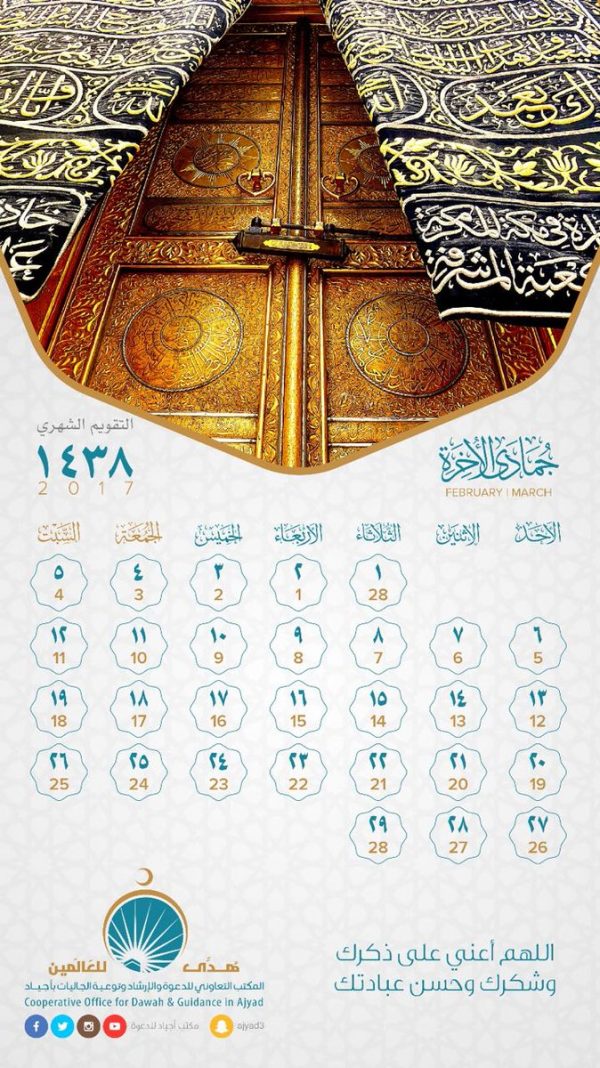 في مكة المكرمة
المشرفة
جُمَادَى الآخِرَة
FEBRUARY | MARCH
التقويم الشهري
١٤٣٨
2017
الأَحَد الاثنين الثُّلَاثَاء الأَرْبِعَاء الخَمِيْس الجُمُعَة السَّبْت
١ ٢ ٣ ٤ ٥
28 1 2 3 4
٦ ٧ ٨ ٩ ١٠ ١١ ١٢
5 6 7 8 9 10 11
١٣ ١٤ ١٥ ١٦ ١٧ ١٨ ١٩
12 13 14 15 16 17 18
٢٠ ٢١ ٢٢ ٢٣ ٢٤ ٢٥ ٢٦
19 20 21 22 23 24 25
٢٧ ٢٨ ٢٩
26 27 28
اللهم أعني على ذكرك
وشكرك وحسن عبادتك
هُدًى للعَالَمين
المكتب التعاوني للدعوة والإرشاد وتوعية الجاليات بأجياد
Cooperative Office for Dawah & Guidance in Ajyad
مكتب أجياد للدعوة
ajyad3